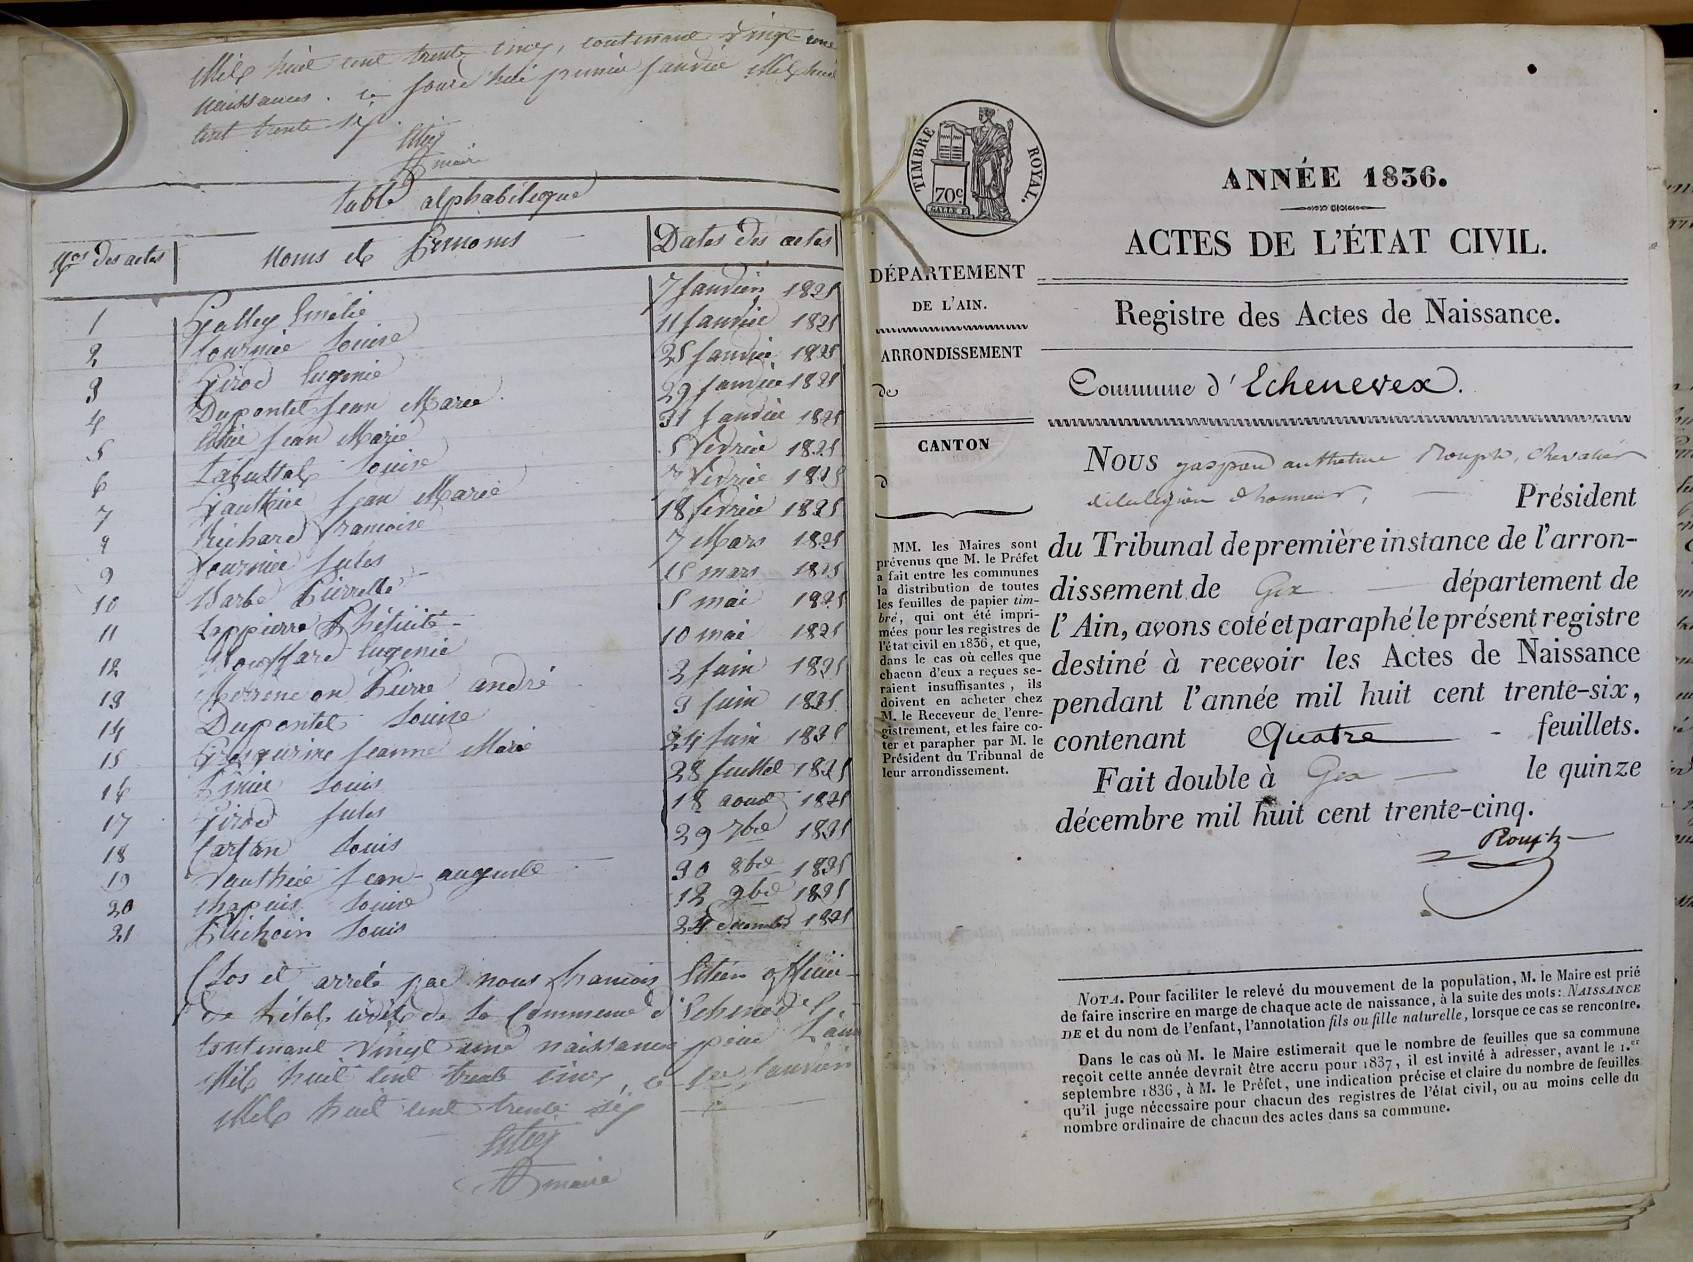 Mil huit cent trente cinq, contenant vingt une
naissances. ce jourd'hui premier janvier Mil huit
cent trente six.
maire
table alphabétique
Nos des actes | Noms et Prénoms | Dates des actes
1 Galley Emélie 7 Janvier 1835
2 fournier Louise 11 Janvier 1835
3 Girod Eugenie 25 Janvier 1835
4 Dupontet Jean Marie 29 Janvier 1835
5 Jean Marie 31 Janvier 1835
6 Louise 5 fevrier 1835
7 Gauthier Jean Marie 7 fevrier 1835
8 Richard francoise 18 fevrier 1835
9 fournier Jules 7 Mars 1835
10 Barbe Pierrette 15 mars 1835
11 Lappierre 5 mai 1835
12 Eugenie 10 mai 1835
13 Pierre andré 2 Juin 1835
14 Dupontet Louise 9 Juin 1835
15 Jeanne Marie 24 Juin 1835
16 Louis 28 Juillet 1835
17 Girod Jules 18 aout 1835
18 Louis 29 7bre 1835
19 Gauthier Jean auguste 30 8bre 1835
20 chapuis Louise 12 9bre 1835
21 Louis 24 decembre 1835
Clos et arreté par nous francois officier
de l'état civil de la Commune d'
contenant vingt une naissances pour l'an
Mil huit cent trente cinq, ce 1er Janvier
Mil huit cent trente six
maire
TIMBRE ROYAL.
70c
ANNÉE 1836.
ACTES DE L'ÉTAT CIVIL.
DÉPARTEMENT
DE L'AIN.
ARRONDISSEMENT
de
CANTON
d
MM. les Maires sont
prévenus que M. le Préfet
a fait entre les communes
la distribution de toutes
les feuilles de papier tim-
bré, qui ont été impri-
mées pour les registres de
l'état civil en 1836, et que,
dans le cas où celles que
chacun d'eux a reçues se-
raient insuffisantes, ils
doivent en acheter chez
M. le Receveur de l'enre-
gistrement, et les faire co-
ter et parapher par M. le
Président du Tribunal de
leur arrondissement.
Registre des Actes de Naissance.
Commune d'Echenevex.
Nous gaspard anthelme Rouph, chevalier
de la légion d'honneur, Président
du Tribunal de première instance de l'arron-
dissement de Gex département de
l'Ain, avons coté et paraphé le présent registre
destiné à recevoir les Actes de Naissance
pendant l'année mil huit cent trente-six,
contenant Quatre feuillets.
Fait double à Gex le quinze
décembre mil huit cent trente-cinq.
Rouph
NOTA. Pour faciliter le relevé du mouvement de la population, M. le Maire est prié
de faire inscrire en marge de chaque acte de naissance, à la suite des mots: NAISSANCE
DE et du nom de l'enfant, l'annotation fils ou fille naturelle, lorsque ce cas se rencontre.
Dans le cas où M. le Maire estimerait que le nombre de feuilles que sa commune
reçoit cette année devrait être accru pour 1837, il est invité à adresser, avant le 1.er
septembre 1836, à M. le Préfet, une indication précise et claire du nombre de feuilles
qu'il juge nécessaire pour chacun des registres de l'état civil, ou au moins celle du
nombre ordinaire de chacun des actes dans sa commune.